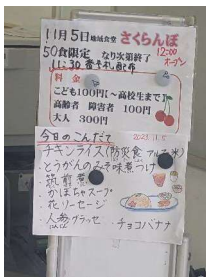 11月5日 地域食堂 さくらんぼ
50食限定 なり次第終了 12:00 オープン
11:30 番号札配布
料金
こども100円(〜高校生まで)
高齢者 障害者 100円
大人 300円
今日のこんだて
チキンライス(防災食 アルファ米)
とうがんのみそ味煮つけ
筑前煮
かぼちゃスープ
花ソーセージ
人参グラッセ チョコバナナ